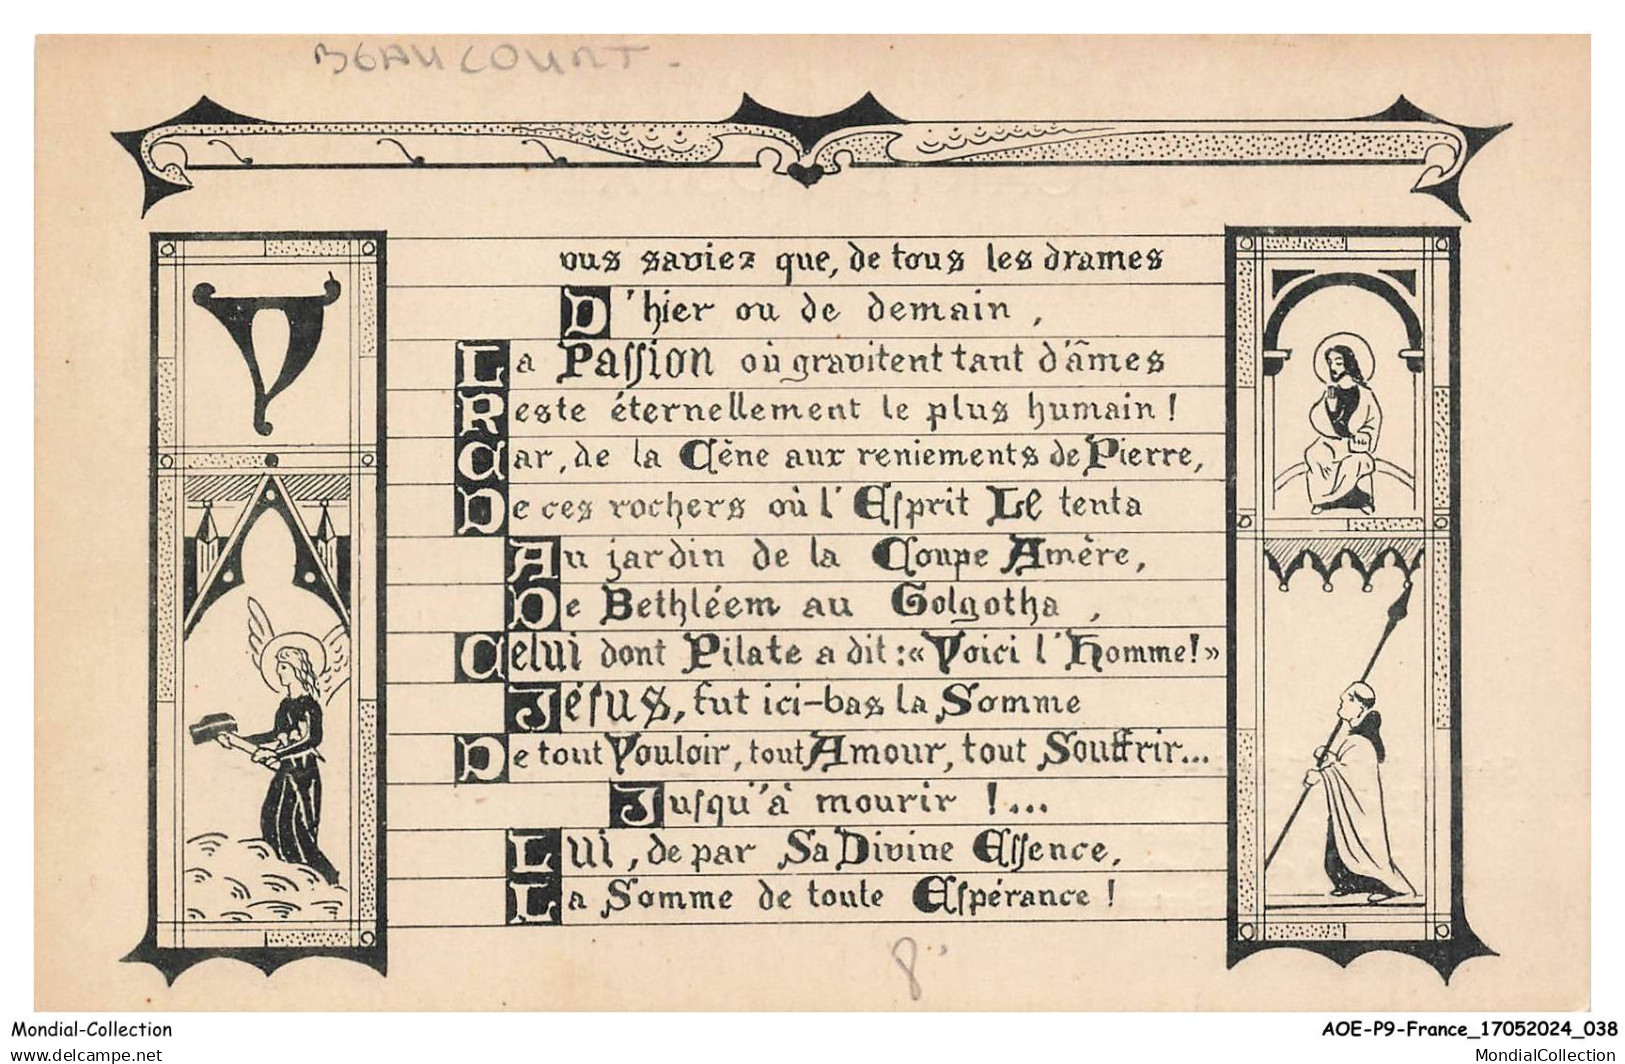 BEAUCOURT -
V
ous saviez que, de tous les drames
D'hier ou de demain,
La Passion où gravitent tant d'âmes
Reste éternellement le plus humain !
Car, de la Cène aux reniements de Pierre,
De ces rochers où l'Esprit Le tenta
Au jardin de la Coupe Amère,
De Bethléem au Golgotha,
Celui dont Pilate a dit : « Voici l'Homme ! »
Jésus, fut ici-bas la Somme
De tout Vouloir, tout Amour, tout Souffrir...
Jusqu'à mourir !...
LUI, de par Sa Divine Essence,
La Somme de toute Espérance !
8
Mondial-Collection
AOE-P9-France_17052024_038
www.delcampe.net
MondialCollection